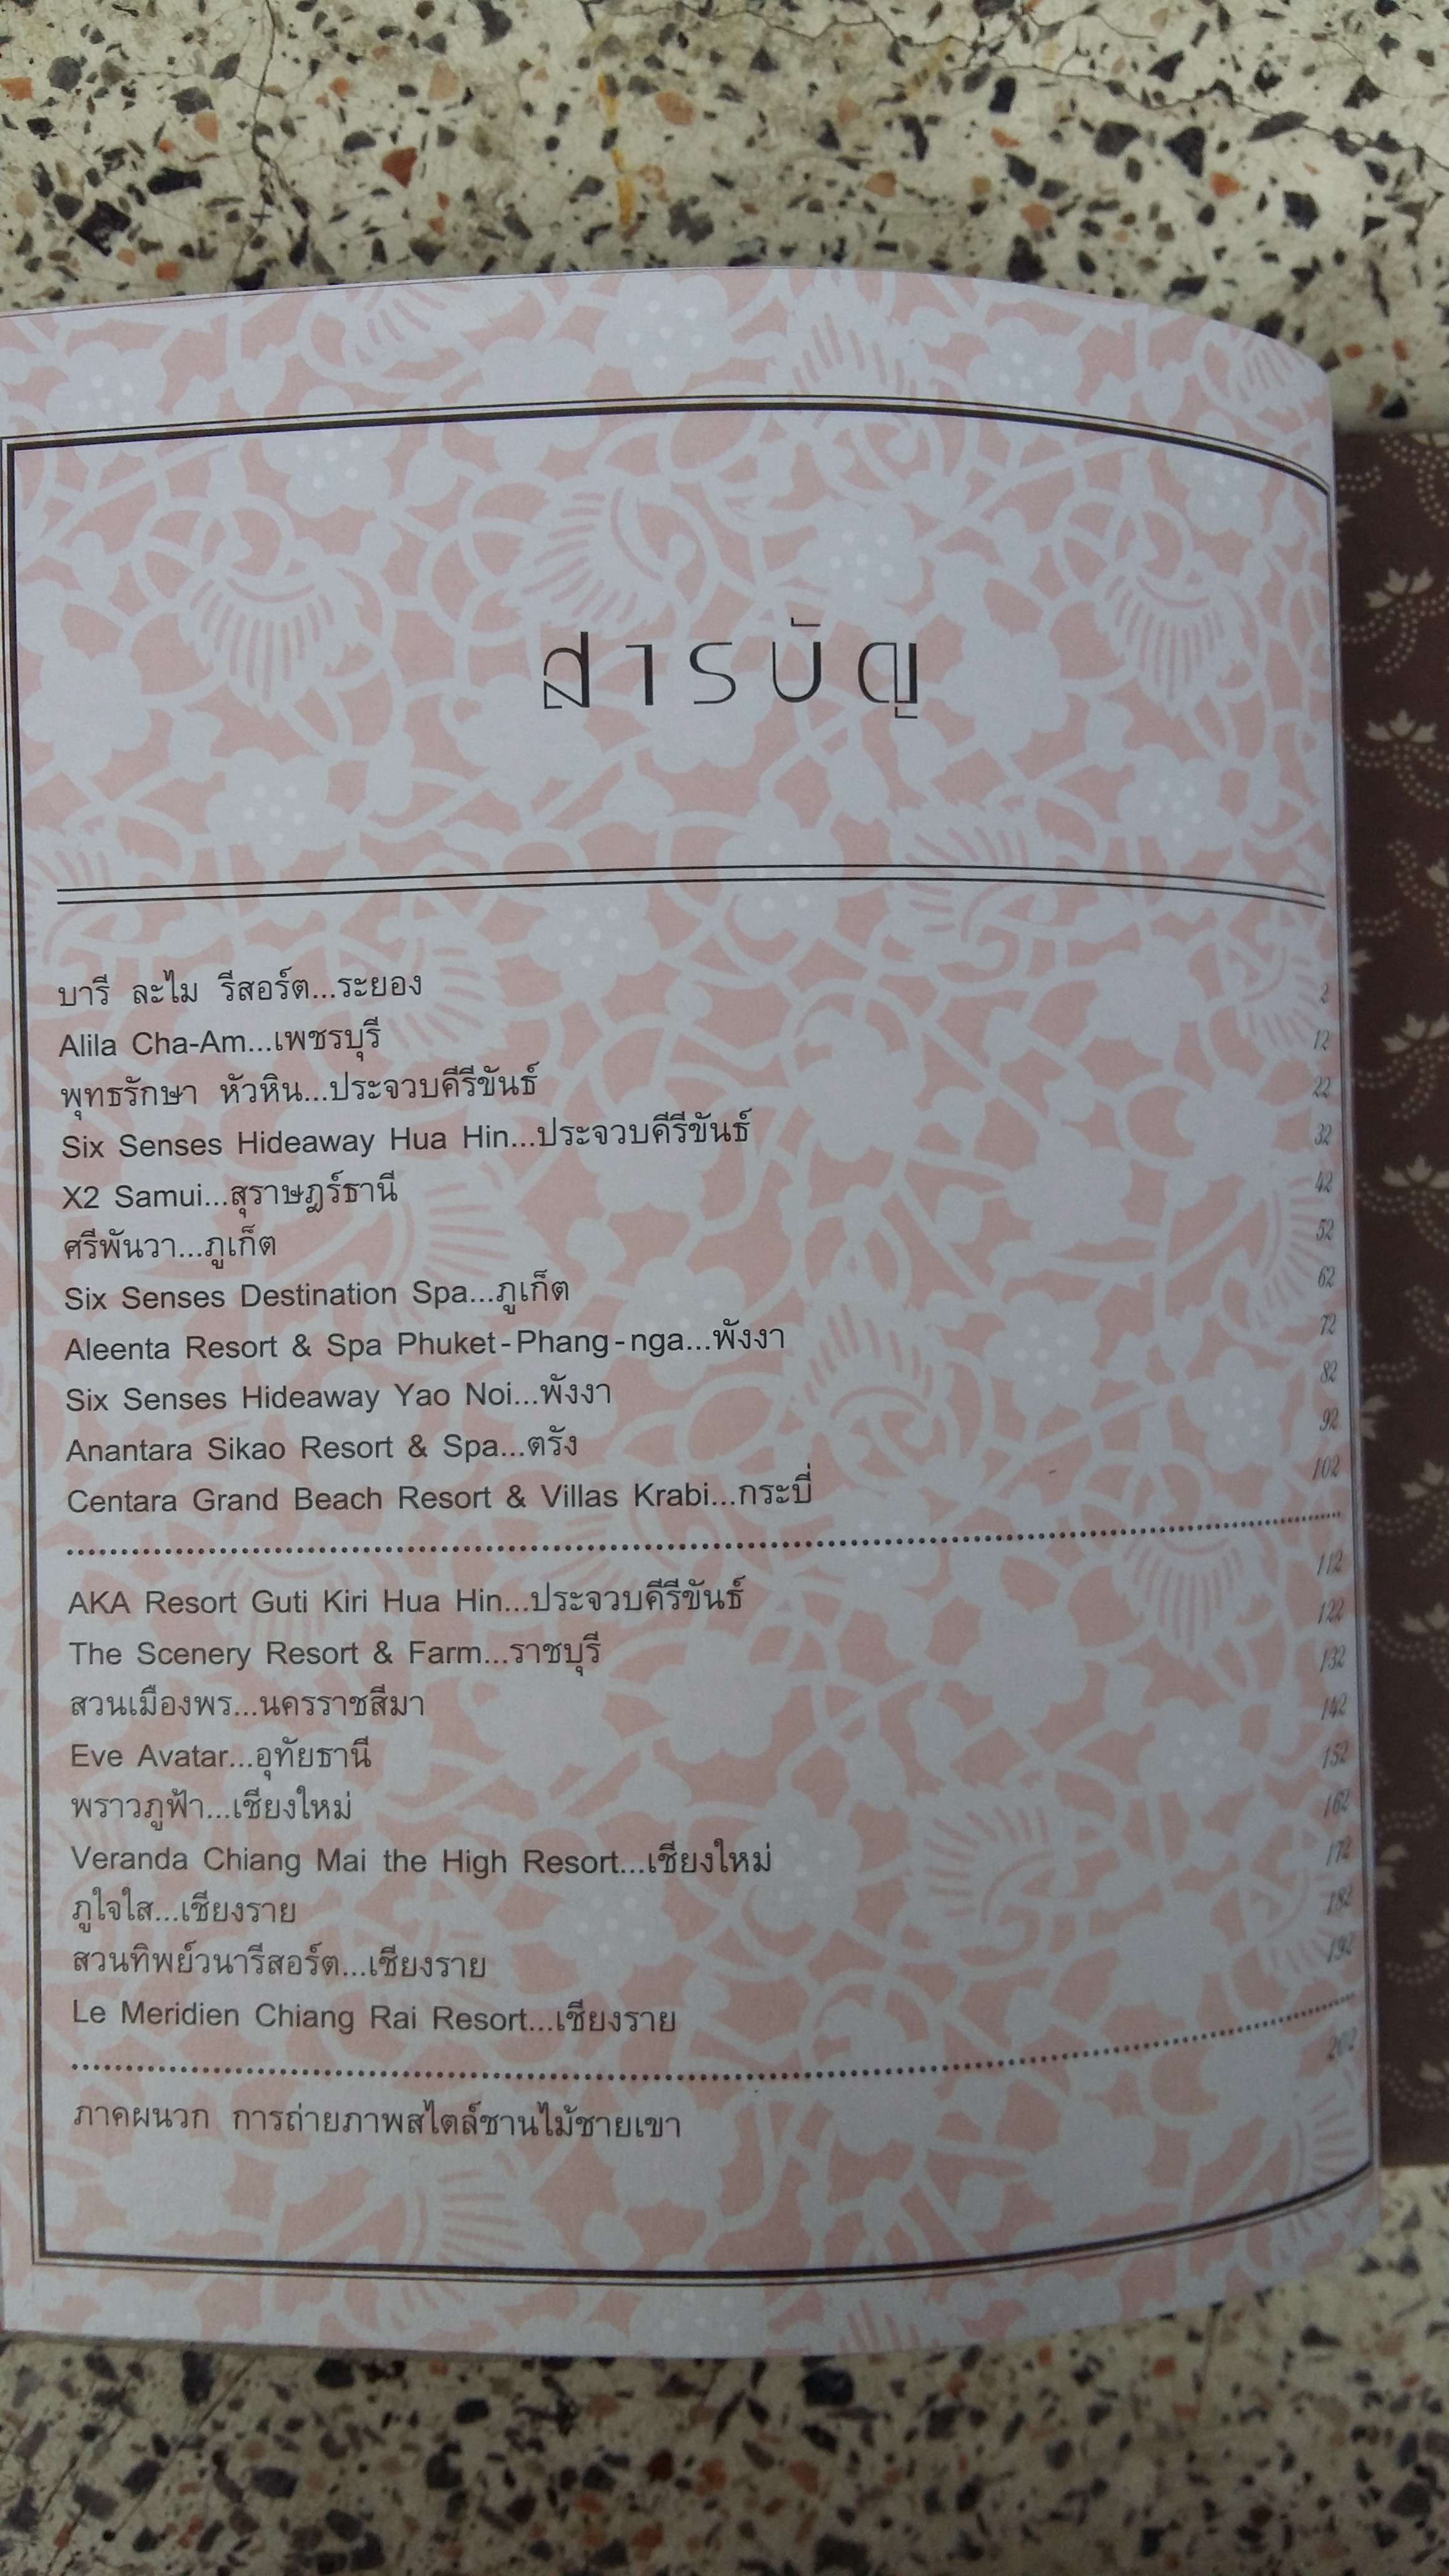 สารบัญ
บารี ละไม รีสอร์ต...ระยอง 2
Alila Cha-Am...เพชรบุรี 12
พุทธรักษา หัวหิน...ประจวบคีรีขันธ์ 22
Six Senses Hideaway Hua Hin...ประจวบคีรีขันธ์ 32
X2 Samui...สุราษฎร์ธานี 42
ศรีพันวา...ภูเก็ต 52
Six Senses Destination Spa...ภูเก็ต 62
Aleenta Resort & Spa Phuket-Phang-nga...พังงา 72
Six Senses Hideaway Yao Noi...พังงา 82
Anantara Sikao Resort & Spa...ตรัง 92
Centara Grand Beach Resort & Villas Krabi...กระบี่ 102
AKA Resort Guti Kiri Hua Hin...ประจวบคีรีขันธ์ 112
The Scenery Resort & Farm...ราชบุรี 122
สวนเมืองพร...นครราชสีมา 132
Eve Avatar...อุทัยธานี 142
พราวภูฟ้า...เชียงใหม่ 152
Veranda Chiang Mai the High Resort...เชียงใหม่ 162
ภูใจใส...เชียงราย 172
สวนทิพย์วนารีสอร์ต...เชียงราย 182
Le Meridien Chiang Rai Resort...เชียงราย 192
ภาคผนวก การถ่ายภาพสไตล์ชานไม้ชายเขา 202